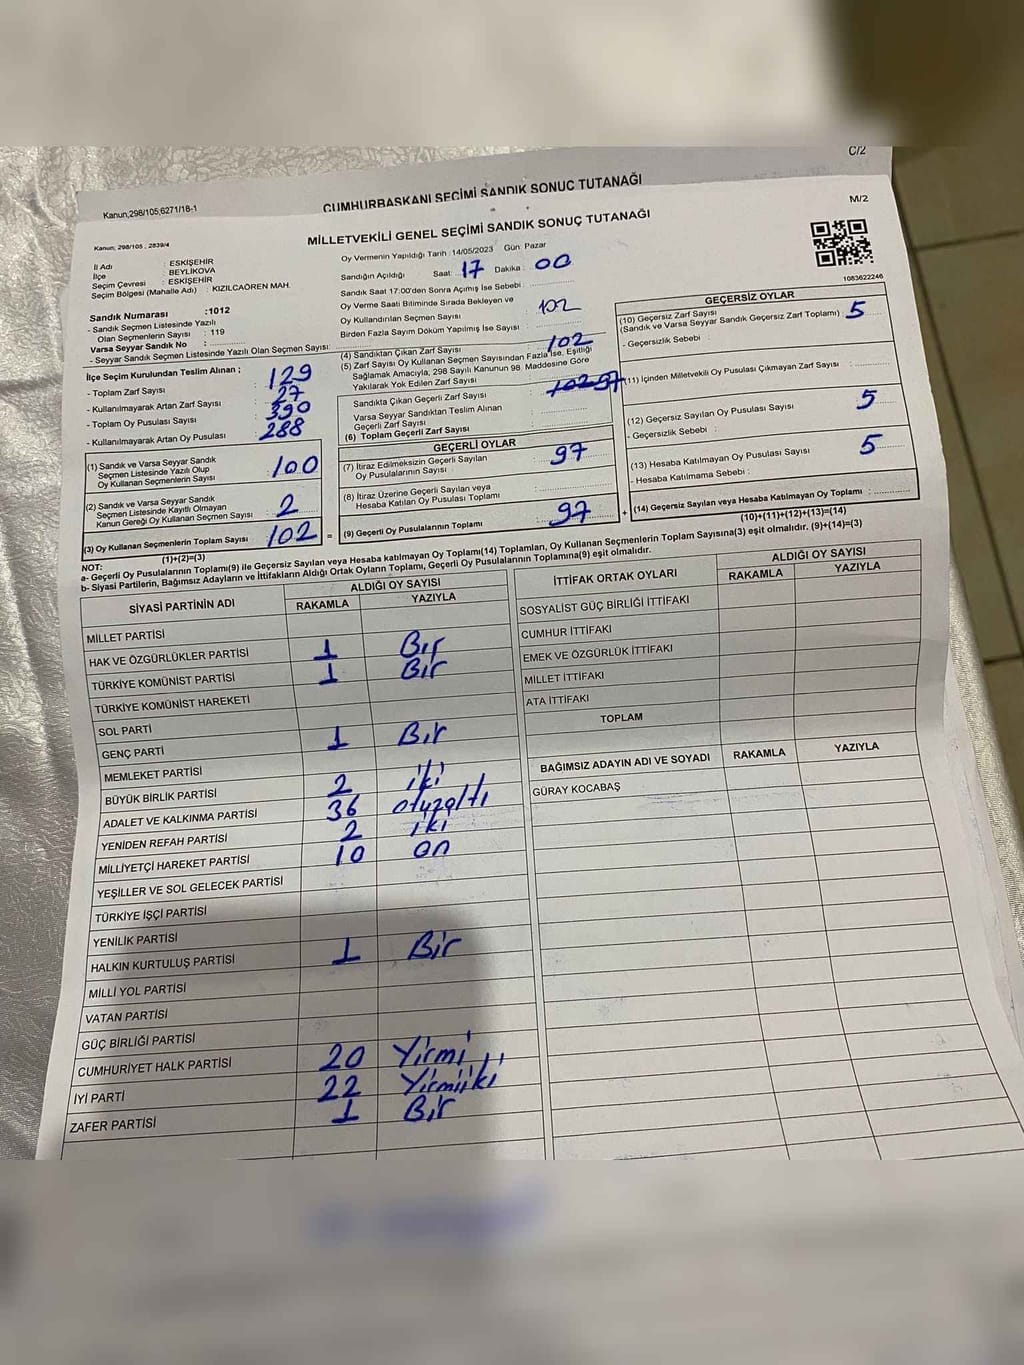 C/2
CUMHURBAŞKANI SEÇİMİ SANDIK SONUÇ TUTANAĞI
Kanun;298/105;6271/18-1
M/2
MİLLETVEKİLİ GENEL SEÇİMİ SANDIK SONUÇ TUTANAĞI
Kanun; 298/105 , 2839/4
1083622246
İl Adı : ESKİŞEHİR
İlçe : BEYLİKOVA
Seçim Çevresi : ESKİŞEHİR
Seçim Bölgesi (Mahalle Adı) : KIZILCAÖREN MAH.
Sandık Numarası :1012
- Sandık Seçmen Listesinde Yazılı
Olan Seçmenlerin Sayısı : 119
Varsa Seyyar Sandık No :
- Seyyar Sandık Seçmen Listesinde Yazılı Olan Seçmen Sayısı:
Oy Vermenin Yapıldığı Tarih :14/05/2023 Gün: Pazar
Sandığın Açıldığı Saat: 17 Dakika : 00
Sandık Saat 17:00'den Sonra Açılmış İse Sebebi :
Oy Verme Saati Bitiminde Sırada Bekleyen ve
Oy Kullandırılan Seçmen Sayısı : 102
Birden Fazla Sayım Döküm Yapılmış İse Sayısı :
İlçe Seçim Kurulundan Teslim Alınan ;
- Toplam Zarf Sayısı : 129
- Kullanılmayarak Artan Zarf Sayısı : 27
- Toplam Oy Pusulası Sayısı : 390
- Kullanılmayarak Artan Oy Pusulası : 288
(1) Sandık ve Varsa Seyyar Sandık
Seçmen Listesinde Yazılı Olup
Oy Kullanan Seçmenlerin Sayısı : 100
(2) Sandık ve Varsa Seyyar Sandık
Seçmen Listesinde Kayıtlı Olmayan
Kanun Gereği Oy Kullanan Seçmen Sayısı : 2
(3) Oy Kullanan Seçmenlerin Toplam Sayısı : 102
(1)+(2)=(3)
(4) Sandıktan Çıkan Zarf Sayısı : 102
(5) Zarf Sayısı Oy Kullanan Seçmen Sayısından Fazla İse, Eşitliği
Sağlamak Amacıyla; 298 Sayılı Kanunun 98. Maddesine Göre
Yakılarak Yok Edilen Zarf Sayısı :
Sandıkta Çıkan Geçerli Zarf Sayısı : 102 97
Varsa Seyyar Sandıktan Teslim Alınan
Geçerli Zarf Sayısı :
(6) Toplam Geçerli Zarf Sayısı :
GEÇERLİ OYLAR
(7) İtiraz Edilmeksizin Geçerli Sayılan
Oy Pusulasının Sayısı : 97
(8) İtiraz Üzerine Geçerli Sayılan veya
Hesaba Katılan Oy Pusulası Toplamı :
= (9) Geçerli Oy Pusulalarının Toplamı : 97 +
GEÇERSİZ OYLAR
(10) Geçersiz Zarf Sayısı : 5
(Sandık ve Varsa Seyyar Sandık Geçersiz Zarf Toplamı)
- Geçersizlik Sebebi :
(11) İçinden Milletvekili Oy Pusulası Çıkmayan Zarf Sayısı :
(12) Geçersiz Sayılan Oy Pusulası Sayısı : 5
- Geçersizlik Sebebi :
(13) Hesaba Katılmayan Oy Pusulası Sayısı : 5
- Hesaba Katılmama Sebebi :
(14) Geçersiz Sayılan veya Hesaba Katılmayan Oy Toplamı :
(10)+(11)+(12)+(13)=(14)
NOT:
a- Geçerli Oy Pusulalarının Toplamı(9) ile Geçersiz Sayılan veya Hesaba katılmayan Oy Toplamı(14) Toplamları, Oy Kullanan Seçmenlerin Toplam Sayısına(3) eşit olmalıdır. (9)+(14)=(3)
b- Siyasi Partilerin, Bağımsız Adayların ve İttifakların Aldığı Ortak Oyların Toplamı, Geçerli Oy Pusulalarının Toplamına(9) eşit olmalıdır.
SİYASİ PARTİNİN ADI ALDIĞI OY SAYISI
RAKAMLA YAZIYLA
MİLLET PARTİSİ
HAK VE ÖZGÜRLÜKLER PARTİSİ 1 Bir
TÜRKİYE KOMÜNİST PARTİSİ 1 Bir
TÜRKİYE KOMÜNİST HAREKETİ
SOL PARTİ
GENÇ PARTİ 1 Bir
MEMLEKET PARTİSİ
BÜYÜK BİRLİK PARTİSİ 2 iki
ADALET VE KALKINMA PARTİSİ 36 otuzaltı
YENİDEN REFAH PARTİSİ 2 iki
MİLLİYETÇİ HAREKET PARTİSİ 10 on
YEŞİLLER VE SOL GELECEK PARTİSİ
TÜRKİYE İŞÇİ PARTİSİ
YENİLİK PARTİSİ
HALKIN KURTULUŞ PARTİSİ 1 Bir
MİLLİ YOL PARTİSİ
VATAN PARTİSİ
GÜÇ BİRLİĞİ PARTİSİ
CUMHURİYET HALK PARTİSİ 20 Yirmi
İYİ PARTİ 22 Yirmiiki
ZAFER PARTİSİ 1 Bir
İTTİFAK ORTAK OYLARI ALDIĞI OY SAYISI
RAKAMLA YAZIYLA
SOSYALİST GÜÇ BİRLİĞİ İTTİFAKI
CUMHUR İTTİFAKI
EMEK VE ÖZGÜRLÜK İTTİFAKI
MİLLET İTTİFAKI
ATA İTTİFAKI
TOPLAM
BAĞIMSIZ ADAYIN ADI VE SOYADI RAKAMLA YAZIYLA
GÜRAY KOCABAŞ